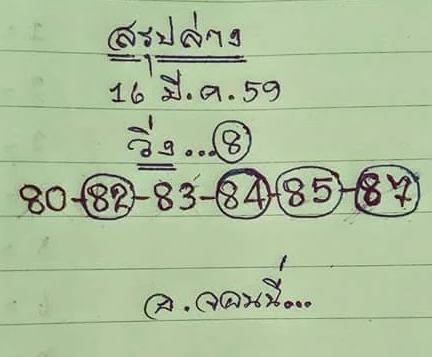 สรุปล่าง
16 มี.ค.59
วิ่ง...8
80-82-83-84-85-87
อ.จอนนี่...